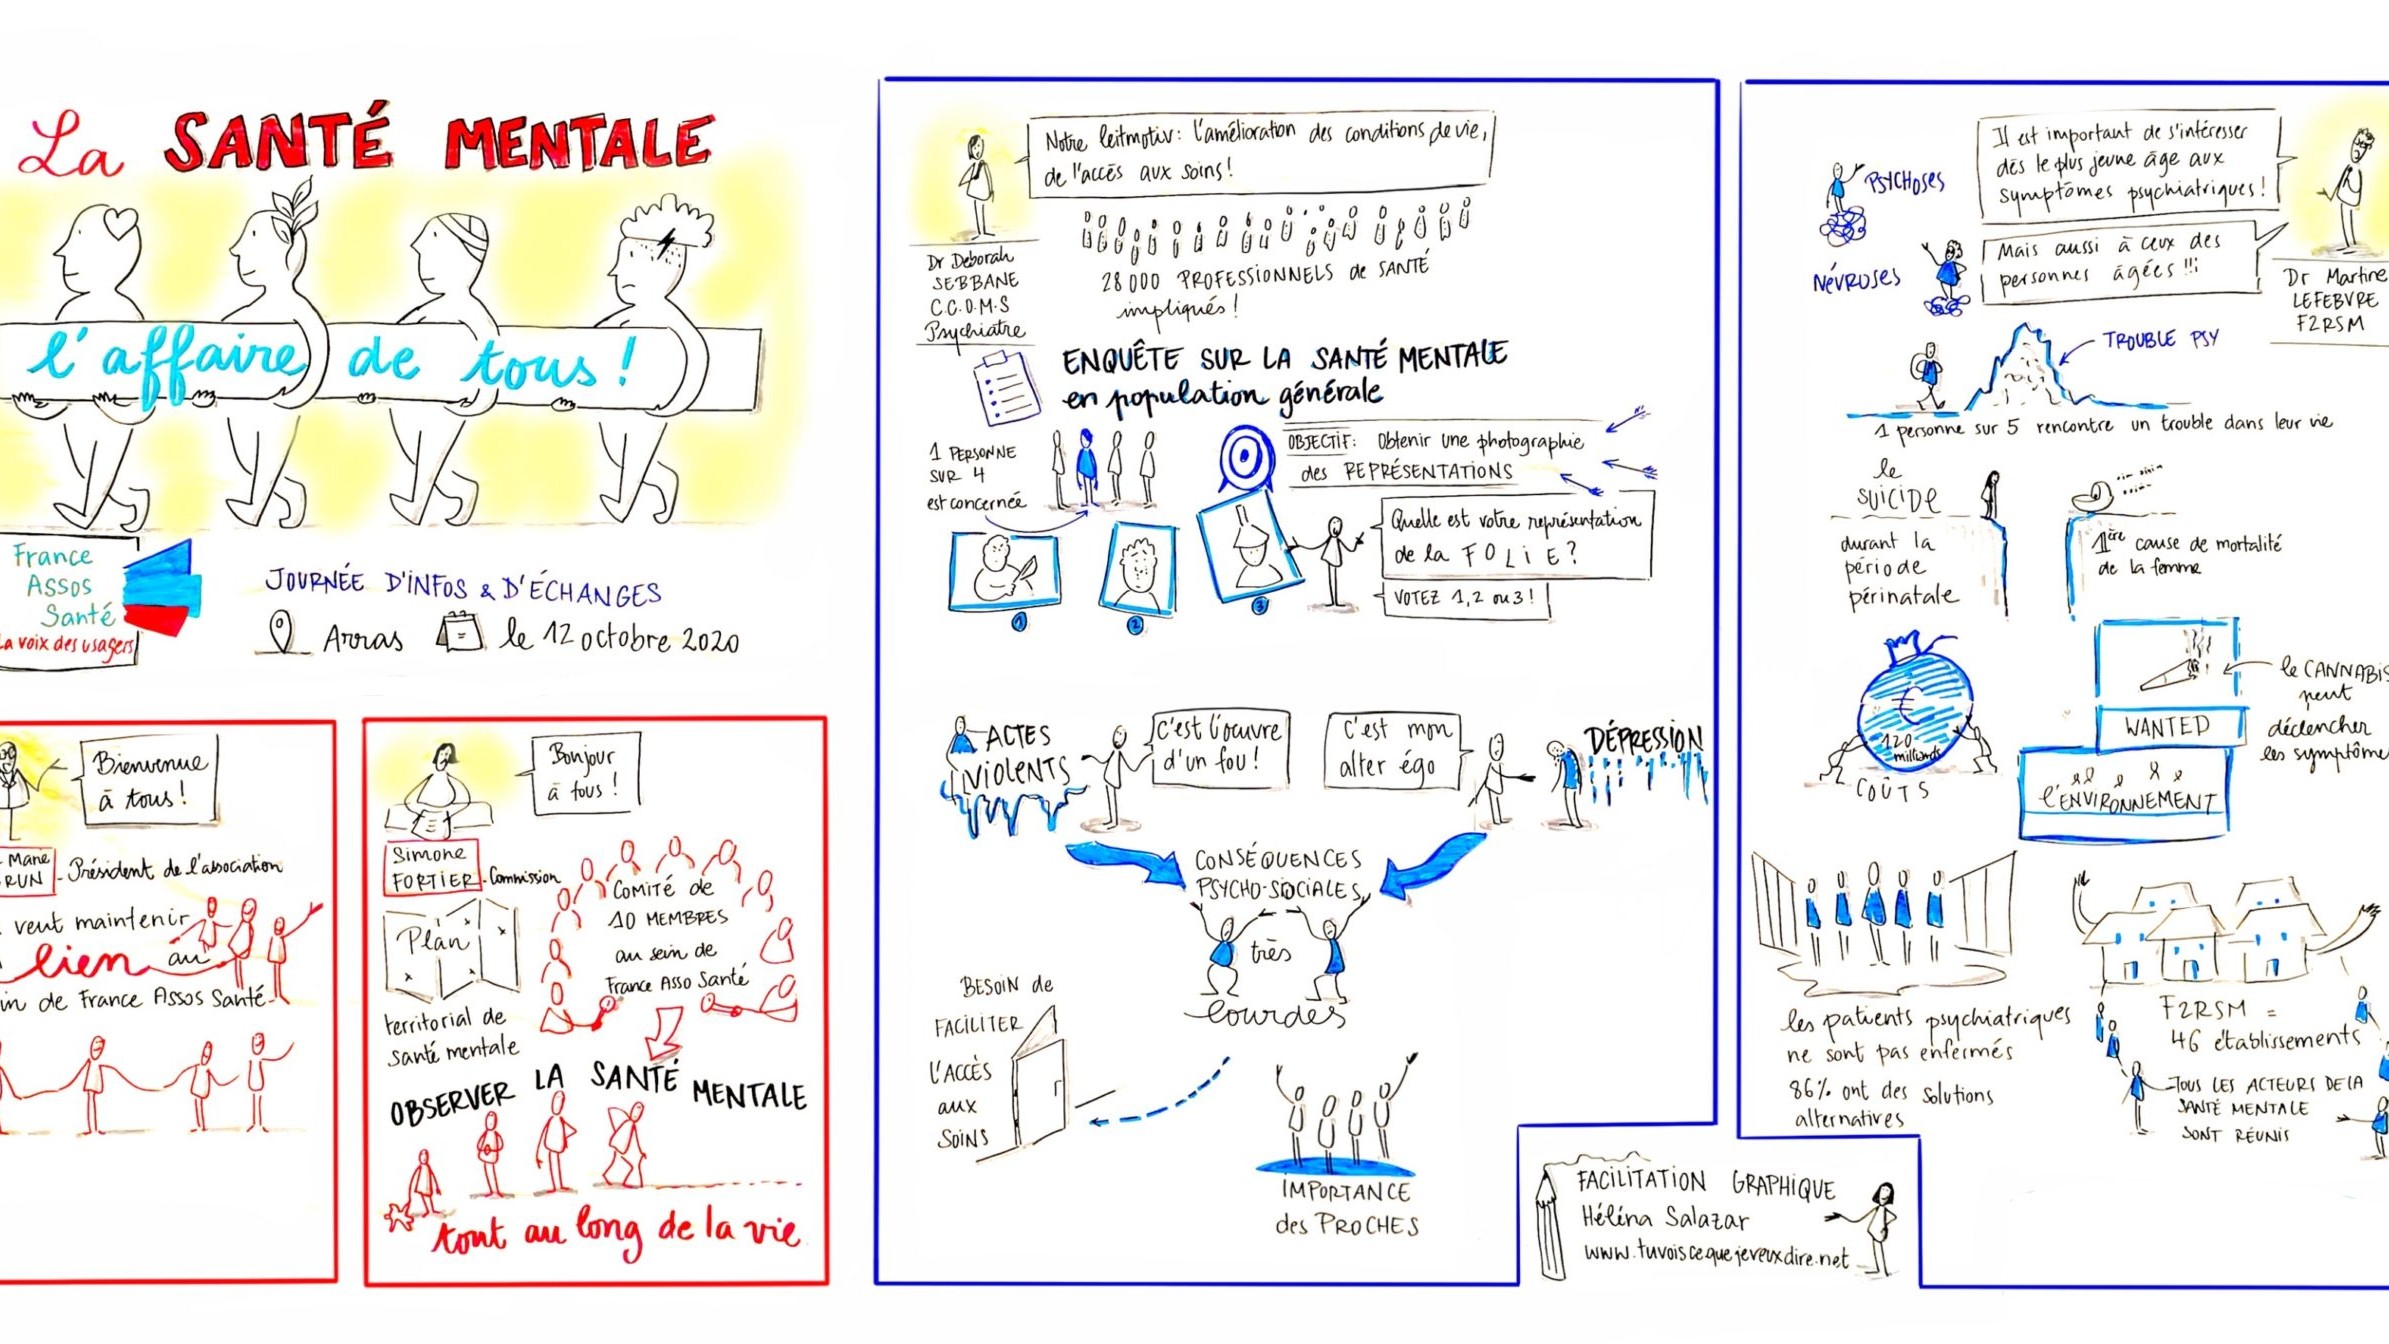 La SANTÉ MENTALE
l'affaire de tous !
France
Assos
Santé
La voix des usagers
JOURNÉE D'INFOS & D'ÉCHANGES
Arras le 12 octobre 2020
Bienvenue
à tous !
RUN - Président de l'association
veut maintenir
lien au
in de France Assos Santé
Bonjour
à tous !
Simone
FORTIER - Commission
Plan
territorial de
santé mentale
COMITÉ de
10 MEMBRES
au sein de
France Asso Santé
OBSERVER LA SANTÉ MENTALE
tout au long de la vie
Notre leitmotiv : l'amélioration des conditions de vie,
de l'accès aux soins !
Dr Deborah
SEBBANE
C.C.O.M.S
Psychiatre
28 000 PROFESSIONNELS de SANTÉ
impliqués !
ENQUÊTE SUR LA SANTÉ MENTALE
en population générale
1 PERSONNE
SUR 4
est concernée
OBJECTIF : Obtenir une photographie
des REPRÉSENTATIONS
Quelle est votre représentation
de la FOLiE ?
VOTEZ 1, 2 ou 3 !
1
2
3
ACTES
VIOLENTS
C'est l'oeuvre
d'un fou !
C'est mon
alter égo
DÉPRESSION
CONSÉQUENCES
PSYCHO-SOCIALES
très
lourdes
BESOIN de
FACILITER
L'ACCÈS
aux
SOINS
IMPORTANCE
des PROCHES
PSYCHOSES
NÉVROSES
Il est important de s'intéresser
dès le plus jeune âge aux
symptômes psychiatriques !
Mais aussi à ceux des
personnes âgées !!!
Dr Martine
LEFEBVRE
F2RSM
TROUBLE PSY
1 personne sur 5 rencontre un trouble dans leur vie
le
SUICIDE
durant la
période
périnatale
1ère cause de mortalité
de la femme
€
120
milliards
COÛTS
WANTED
l'ENVIRONNEMENT
le CANNABIS
peut
déclencher
les symptôme
les patients psychiatriques
ne sont pas enfermés
86% ont des solutions
alternatives
F2RSM =
46 établissements
TOUS LES ACTEURS DE LA
SANTÉ MENTALE
SONT RÉUNIS
FACILITATION GRAPHIQUE
Héléna Salazar
www.tuvoiscequejeveuxdire.net